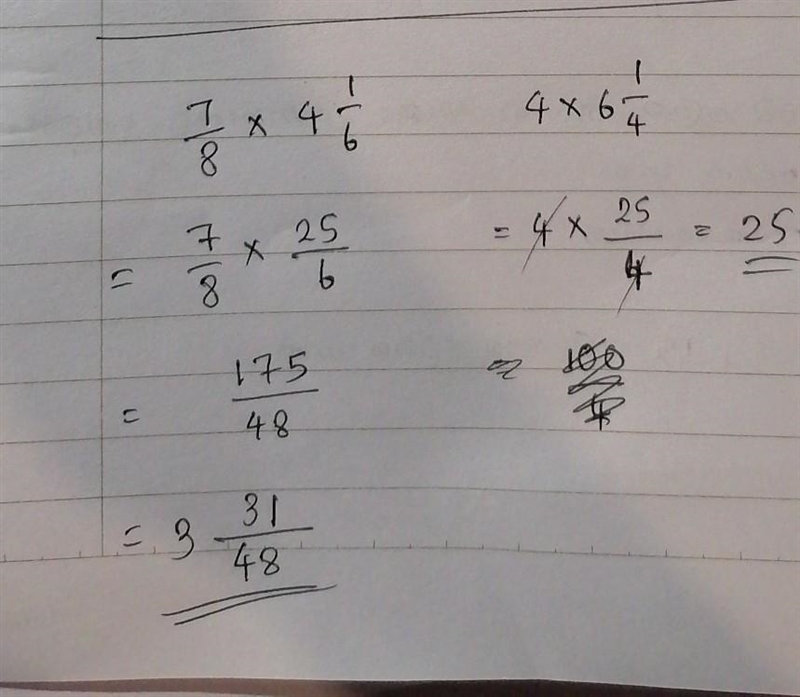 7/8 × 4 1/6
= 7/8 × 25/6
= 175/48
= 3 31/48
4 × 6 1/4
= 4 × 25/4 = 25
= 100/4